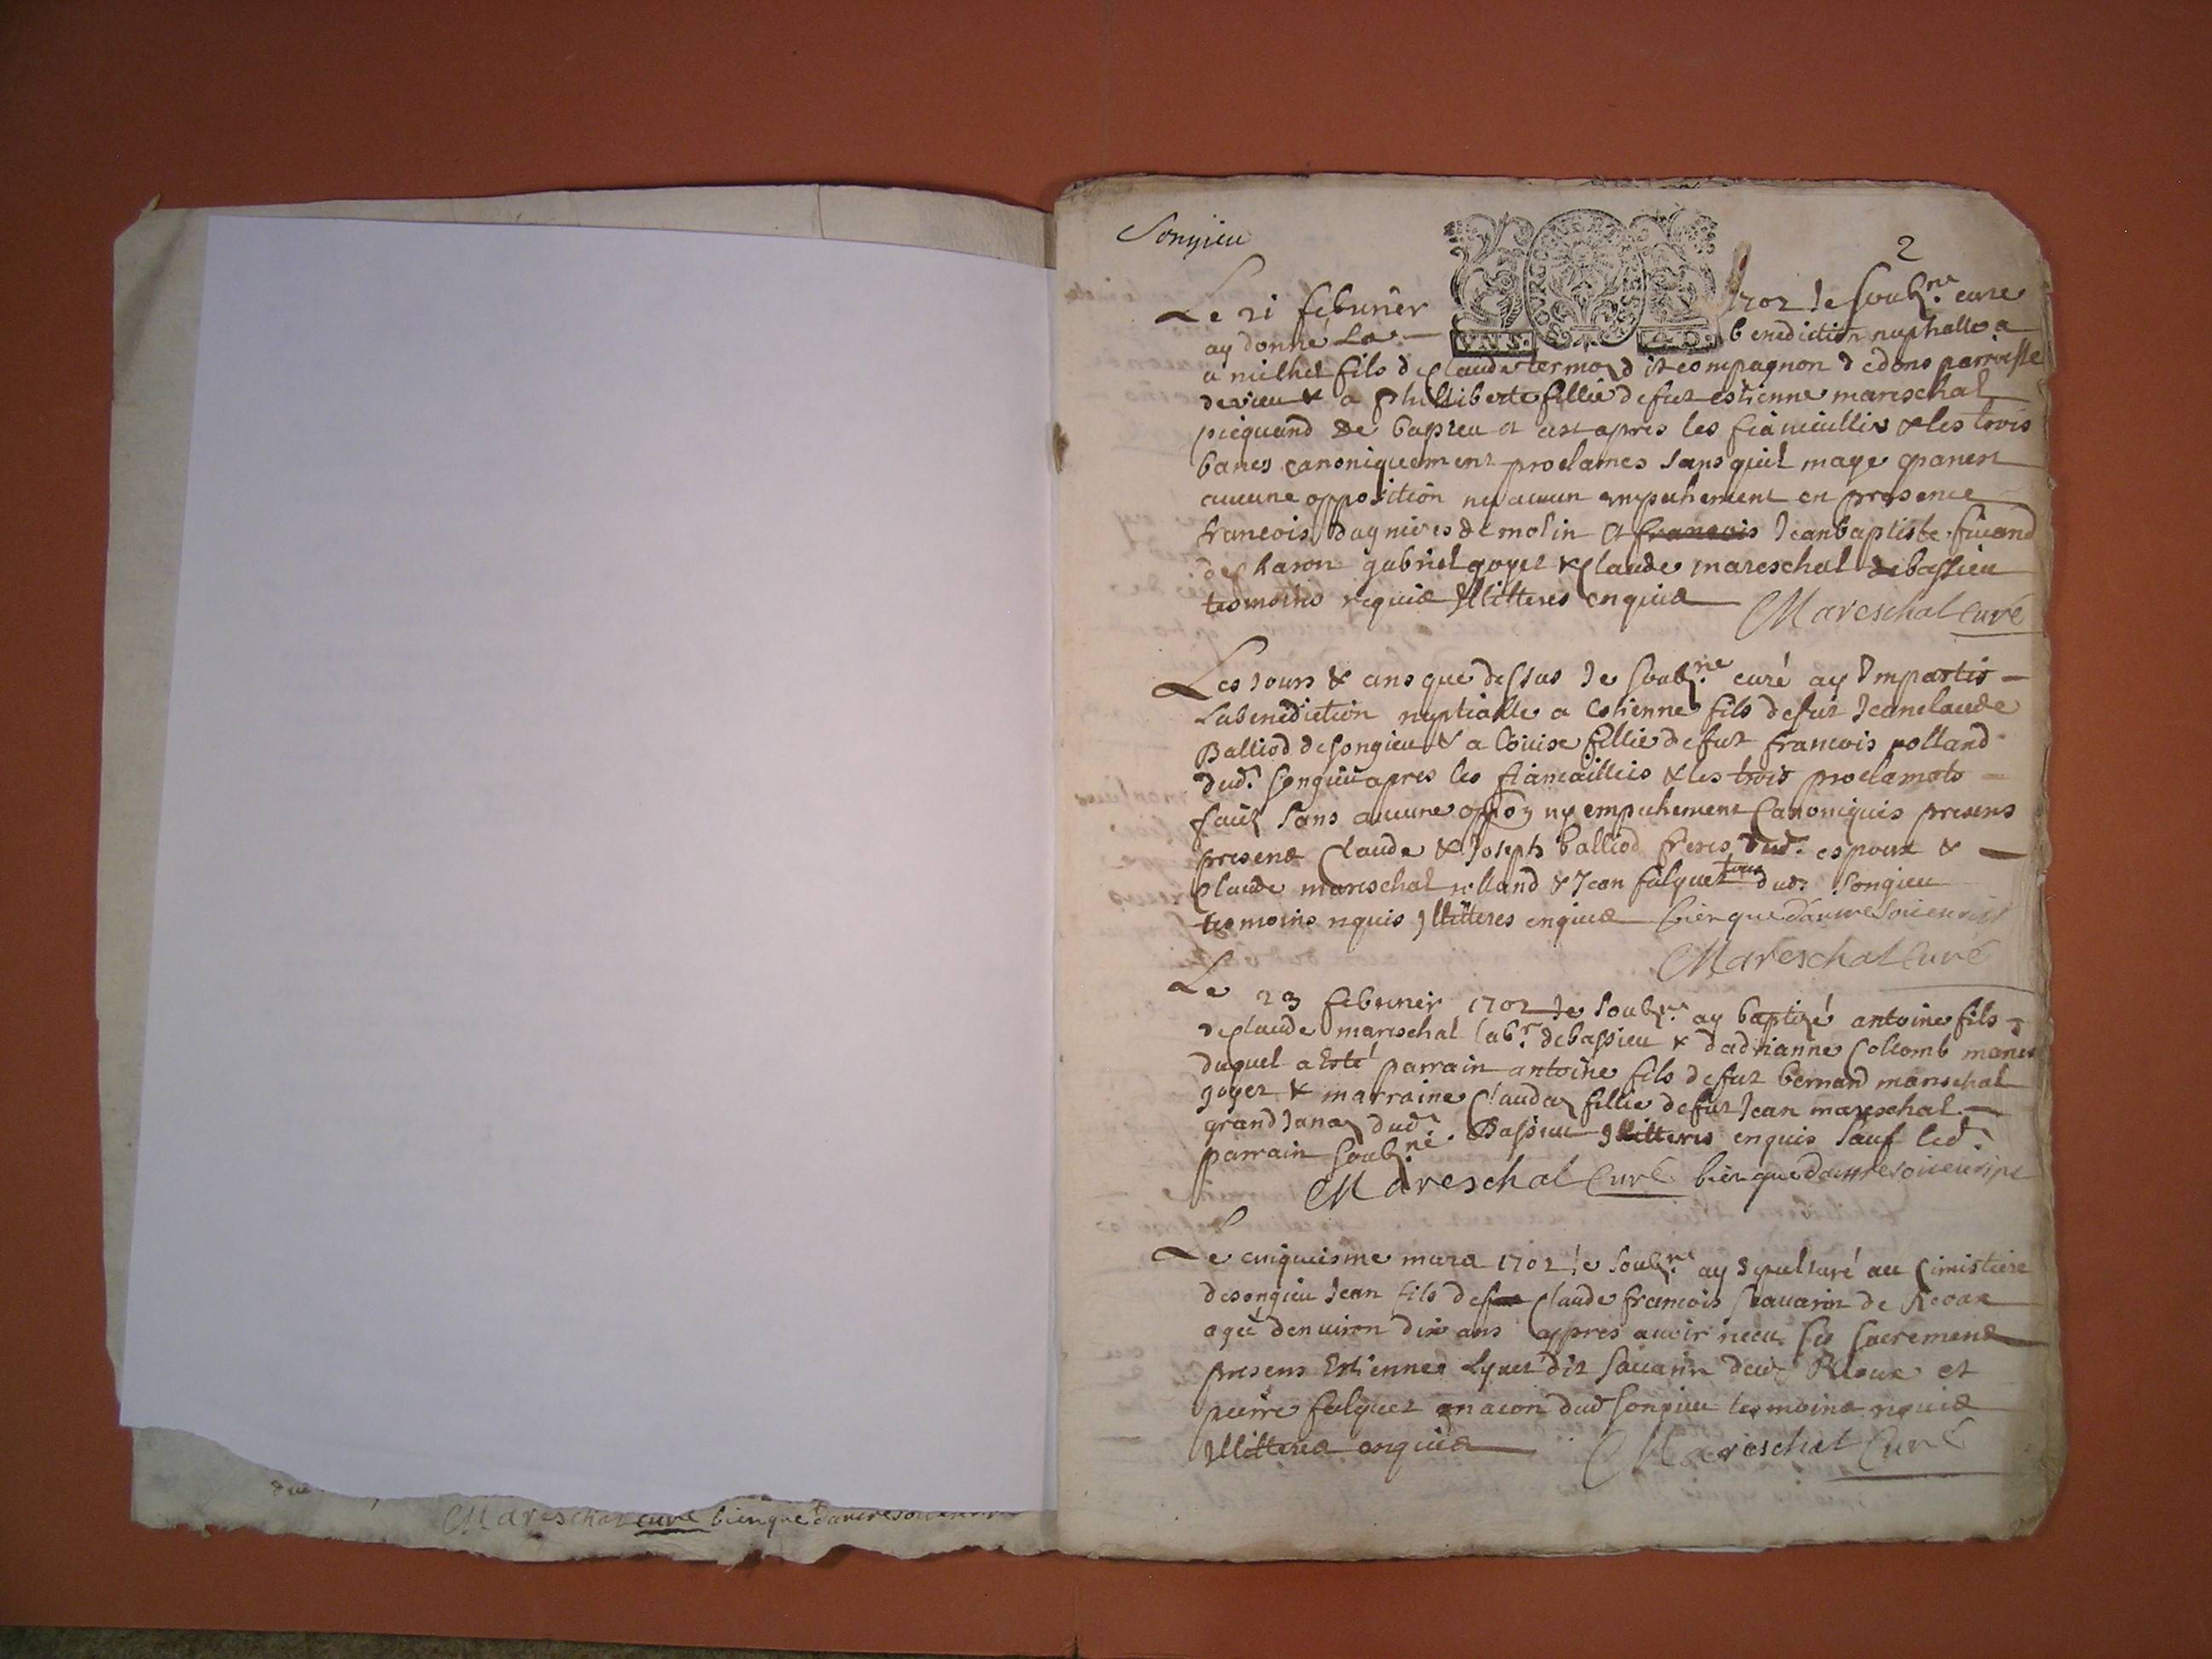 Songieu
2
Le 21 feburier 1702 Je soubz.ne curé
ay donné La — benediction nuptialle a
a michel fils de Claude termoz dit compagnon dedons parroisse
devieu & a philliberte fillie defut estienne mareschal
picquand De bassieu et cest apres les fiancaillies & les trois
bancs canoniquement proclames sans quil maye
aucune opposition ny aucun empechement en presence
francois dagnieres de molin et francois Jean baptiste
de charon gabriel goyet & Claude mareschal de bassieu
tesmoins requis Illitteres enquis Mareschal Curé
Les Jours & ans que dessus Je soubz.ne curé ay Impartis —
La benediction nuptialle a Estienne fils defut Jean claude
Balliod de songieu & a Louise fillie defut francois rolland
dud. songieu apres les fiancaillies & les trois proclamats —
faitz sans aucune oppon ny empechement Canoniques presens
presens Claude & Joseph balliod freres dud. espoux & —
Claude mareschal rolland & Jean fulquet tous dud. songieu
tesmoins requis Illitteres enquis bien que dautre soit ensuipt
Mareschal Curé
Le 23 feburier 1702 Je soubz.ne ay baptizé antoine fils
de Claude mareschal lab.r de bassieu & dadrianne Collomb mariés
duquel a Esté parrain antoine fils defut bernard mareschal
goyet & marraine Claudaz fillie defut Jean mareschal —
grand Janaz dud. Bassieu Illitteres enquis sauf led.
parrain soubz.né.
Mareschal Curé bien que dautre soit ensuipt
Le cinquiesme mars 1702 Je soubz.ne ay sepulturé au Cimistiere
de songieu Jean fils de fut Claude francois savarin de
agé denviron dix ans appres avoir receu ses sacremens
presens Estienne Lyvet dit savarin dud. et
pierre fulquet dud songieu tesmoins requis
Illitteres enquis Mareschal Curé
Mareschal curé bien que dautre soit